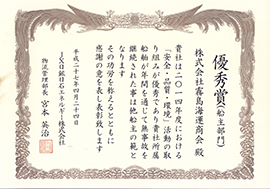 優秀賞(船主部門)
株式会社霧島海運商会 殿
貴社は二〇一四年度における
「安全・品質・環境」活動の取
り組みが優秀であり貴社所属
船舶が年間を通じて無事故を
継続された事は他船主の範と
なります
その功労を称えるとともに
感謝の意を表し表彰致します
平成二十七年四月二十四日
JX日鉱日石エネルギー株式会社
物流管理部長 宮本 治